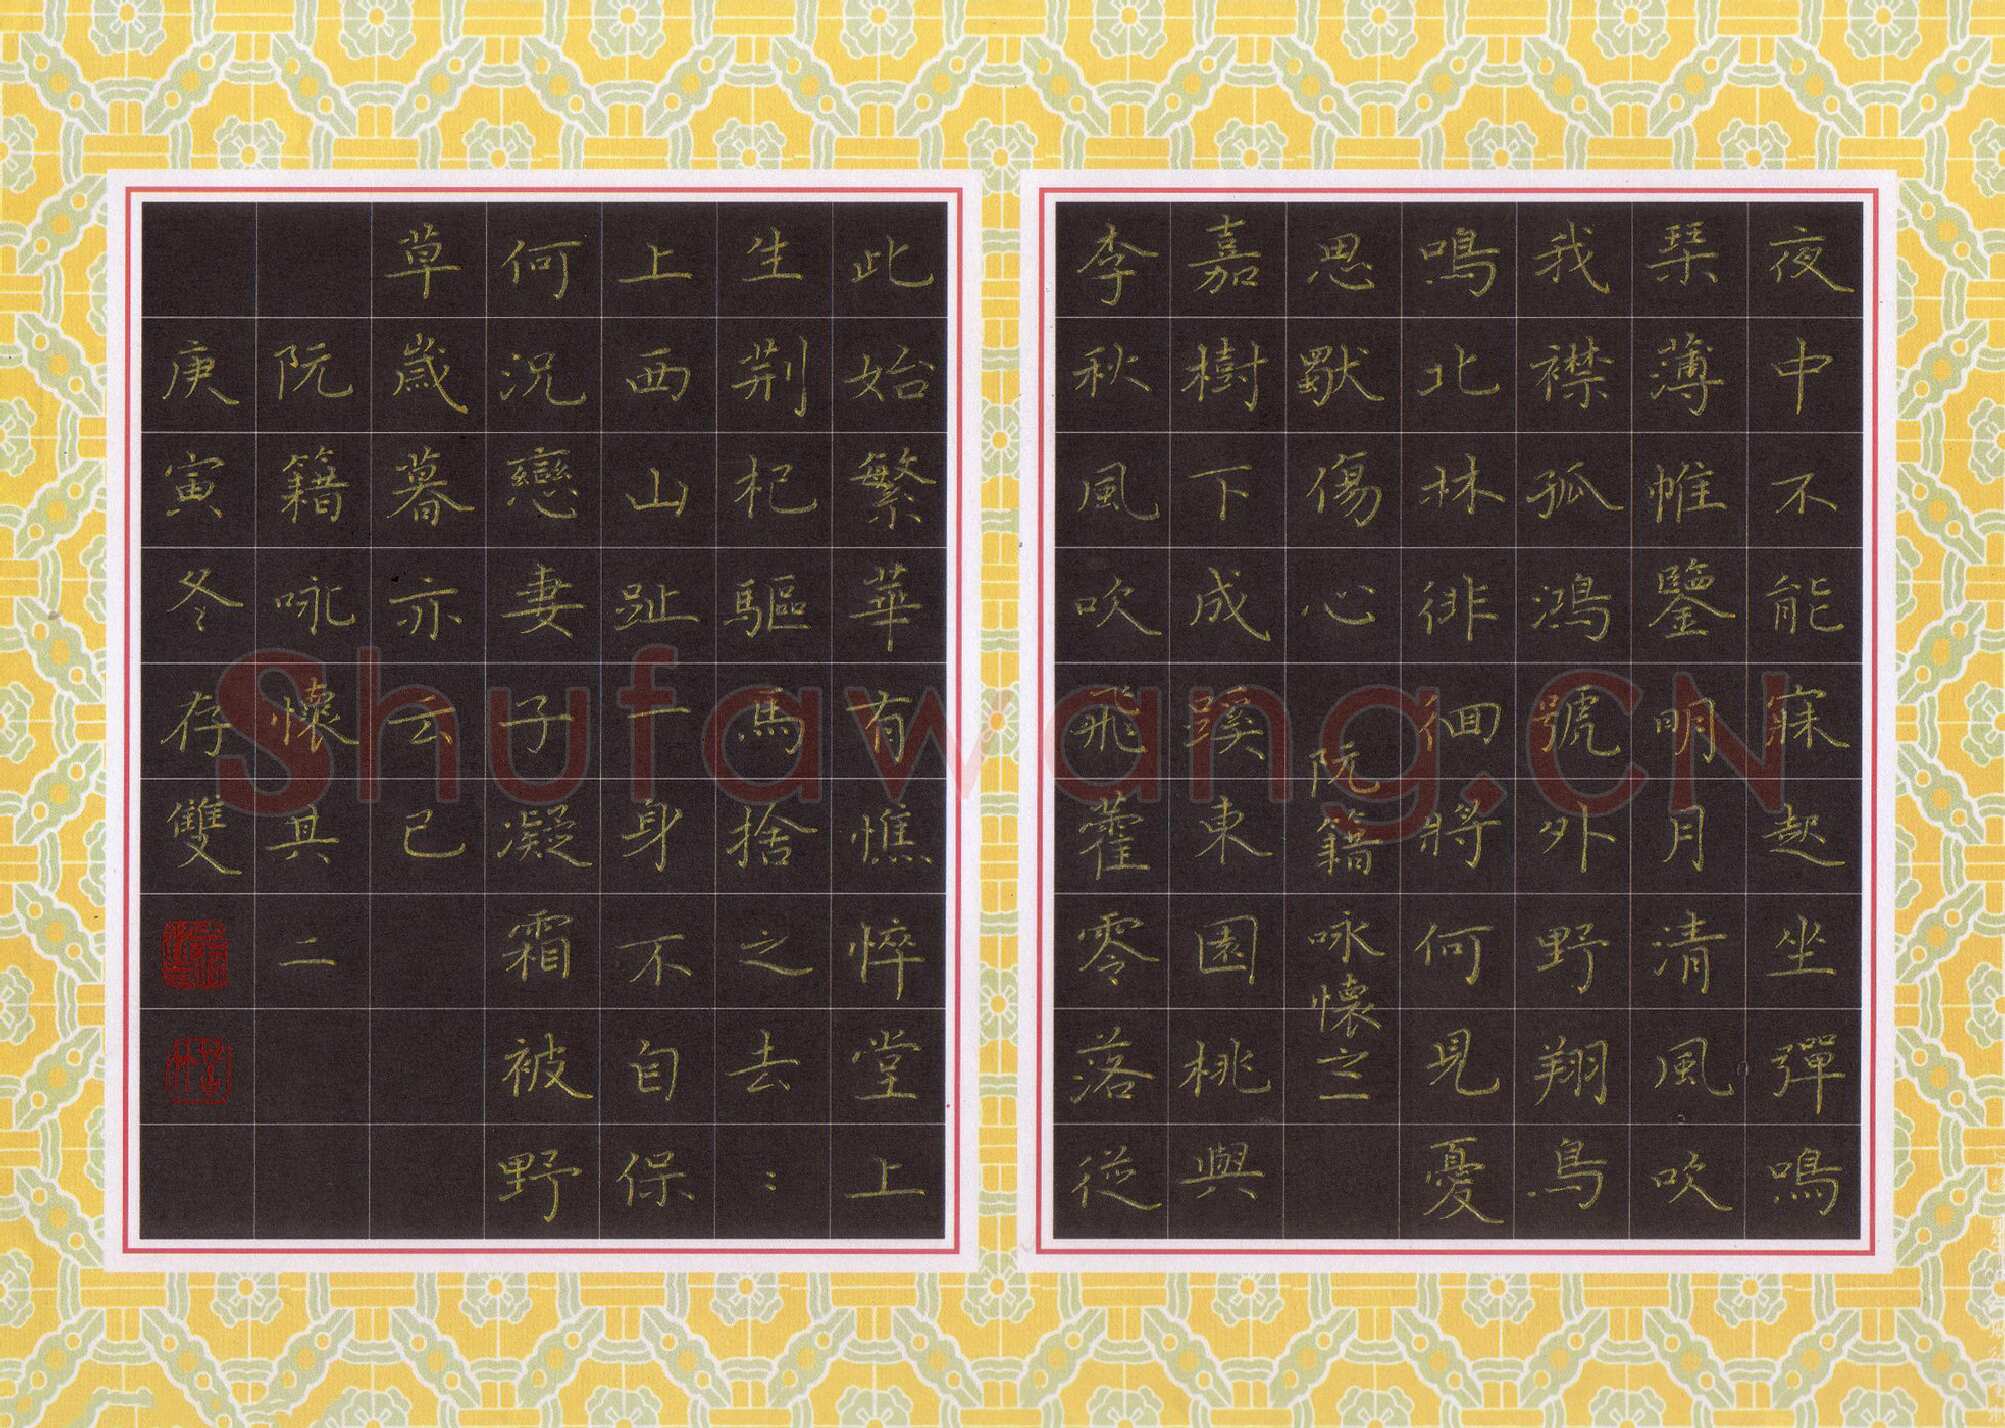 夜中不能寐起坐彈鳴
琴薄帷鑒明月清風吹
我襟孤鴻號外野翔鳥
鳴北林徘徊將何見憂
思獨傷心 阮籍咏懷之一
嘉樹下成蹊東園桃與
李秋風吹飛藿零落從
此始繁華有憔悴堂上
生荆杞驅馬捨之去:
上西山趾一身不自保
何況戀妻子凝霜被野
草歲暮亦云已
阮籍咏懷其二
庚寅冬存雙
Shufawang.CN